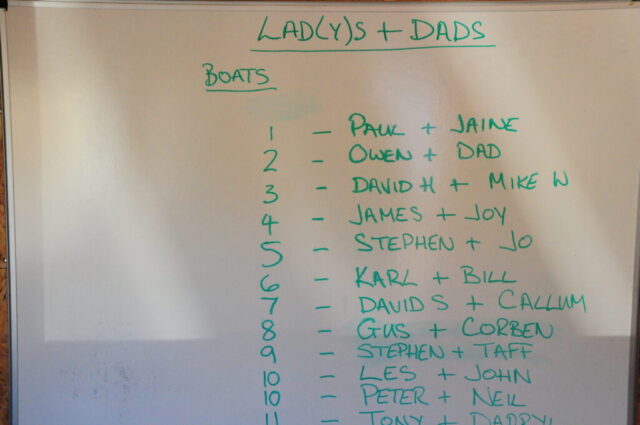 LAD(Y)S + DADS
BOATS
1 - PAUL + JAINE
2 - OWEN + DAD
3 - DAVID H + MIKE W
4 - JAMES + JOY
5 - STEPHEN + JO
6 - KARL + BILL
7 - DAVID S + CALLUM
8 - GUS + CORBEN
9 - STEPHEN + TAFF
10 - LES + JOHN
10 - PETER + NEIL
11 - TONY +